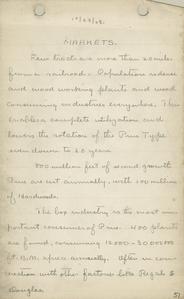 MARKETS.
Few tracts are more than 20 miles
from a railroad. Population is dense
and wood working plants and wood
consuming industries everywhere. This
enables complete utilization and
lowers the rotation of the Pine Type
even down to 20 years
300 million feet of second growth
Pine are cut annually, with 100 million
of Hardwoods.
The box industry is the most im
portant consumer of Pine. 400 plants
are found, consuming 12000 -
ft. B.M. apiece annually. Often in con
nection with other factories like
Douglas